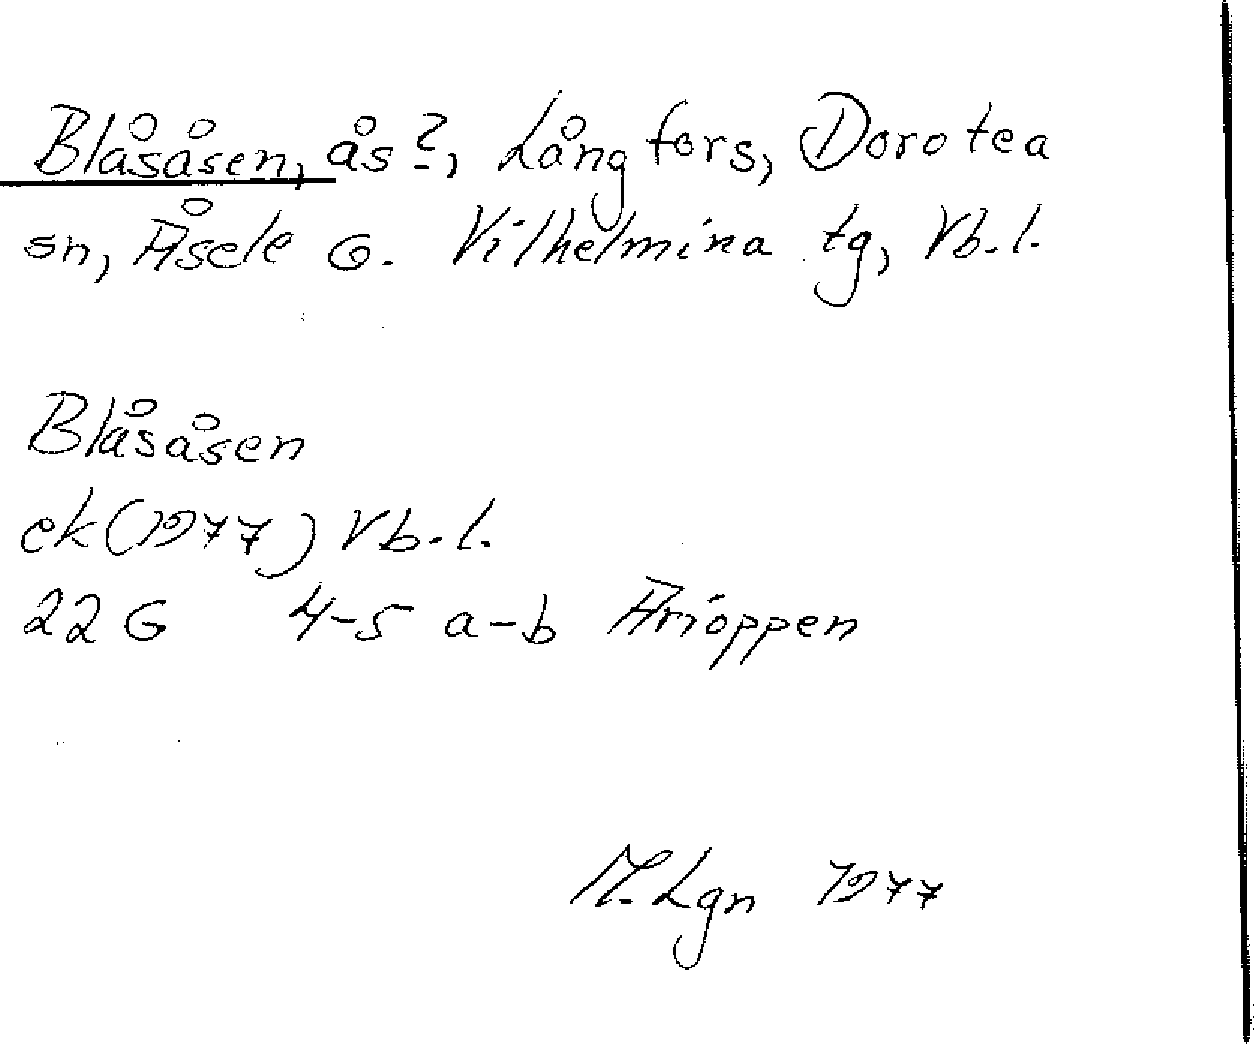 Blåsåsen, ås?, Långfors, Dorotea
sn, Åsele o. Vilhelmina tg, Vb. l.
Blåsåsen
ek (1977) Vb. l.
22 G 4-5 a-b Arioppen
M. Lgn 1977